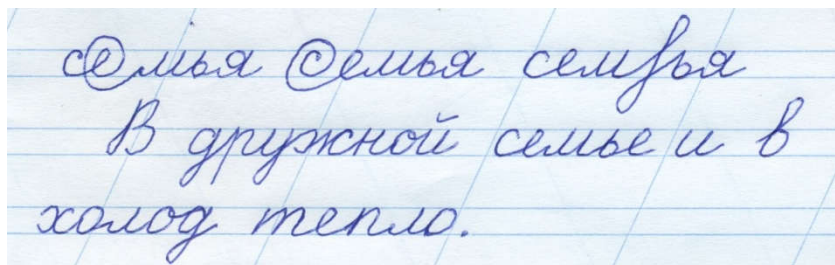 семья семья семья
В дружной семье и в
холод тепло.